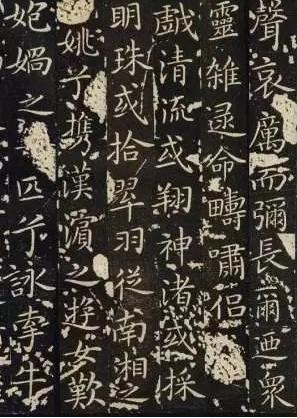 聲哀厲而彌長爾迺眾
靈雜遝命疇嘯侶
戲清流或翔神渚或採
明珠或拾翠羽從南湘之
姚兮携漢濱之遊女歎
媧之匹兮詠牽牛